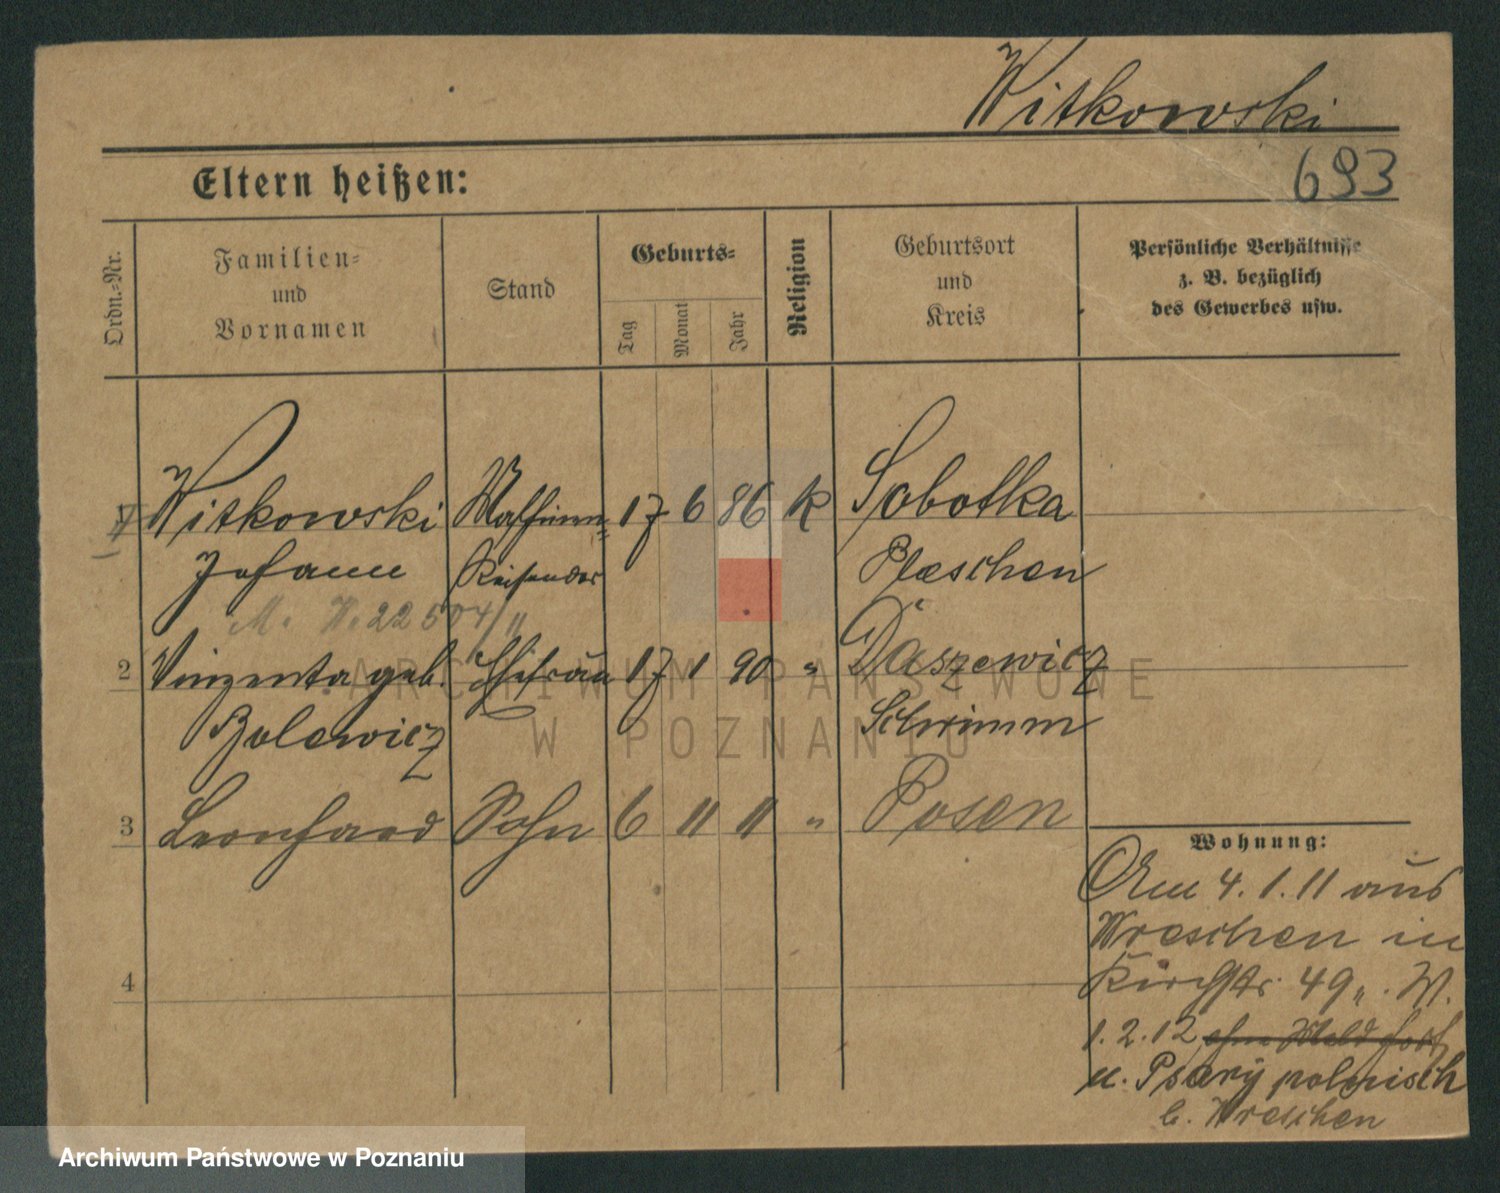 Witkowski
693
Eltern heißen:
Ordn.-Nr.
Familien-
und
Vornamen
Stand
Geburts-
Tag
Monat
Jahr
Religion
Geburtsort
und
Kreis
Persönliche Verhältnisse
z. B. bezüglich
des Gewerbes usw.
1 Witkowski 17 6 86 K Sobotka
Johann Reisender Pleschen
M. W. 22504/11
2 Vinzenta geb. Ehefrau 17 1 90 " Daszewicz
Bolewicz Schrimm
3 Leonhard Sohn 6 11 11 " Posen
4
Wohnung:
Am 4.1.11 aus
Wreschen in
Kirchstr. 49, . W.
1.2.12 ohne Meld fort
n. Psary polnisch
b. Wreschen
ARCHIWUM PAŃSTWOWE
W POZNANIU
Archiwum Państwowe w Poznaniu